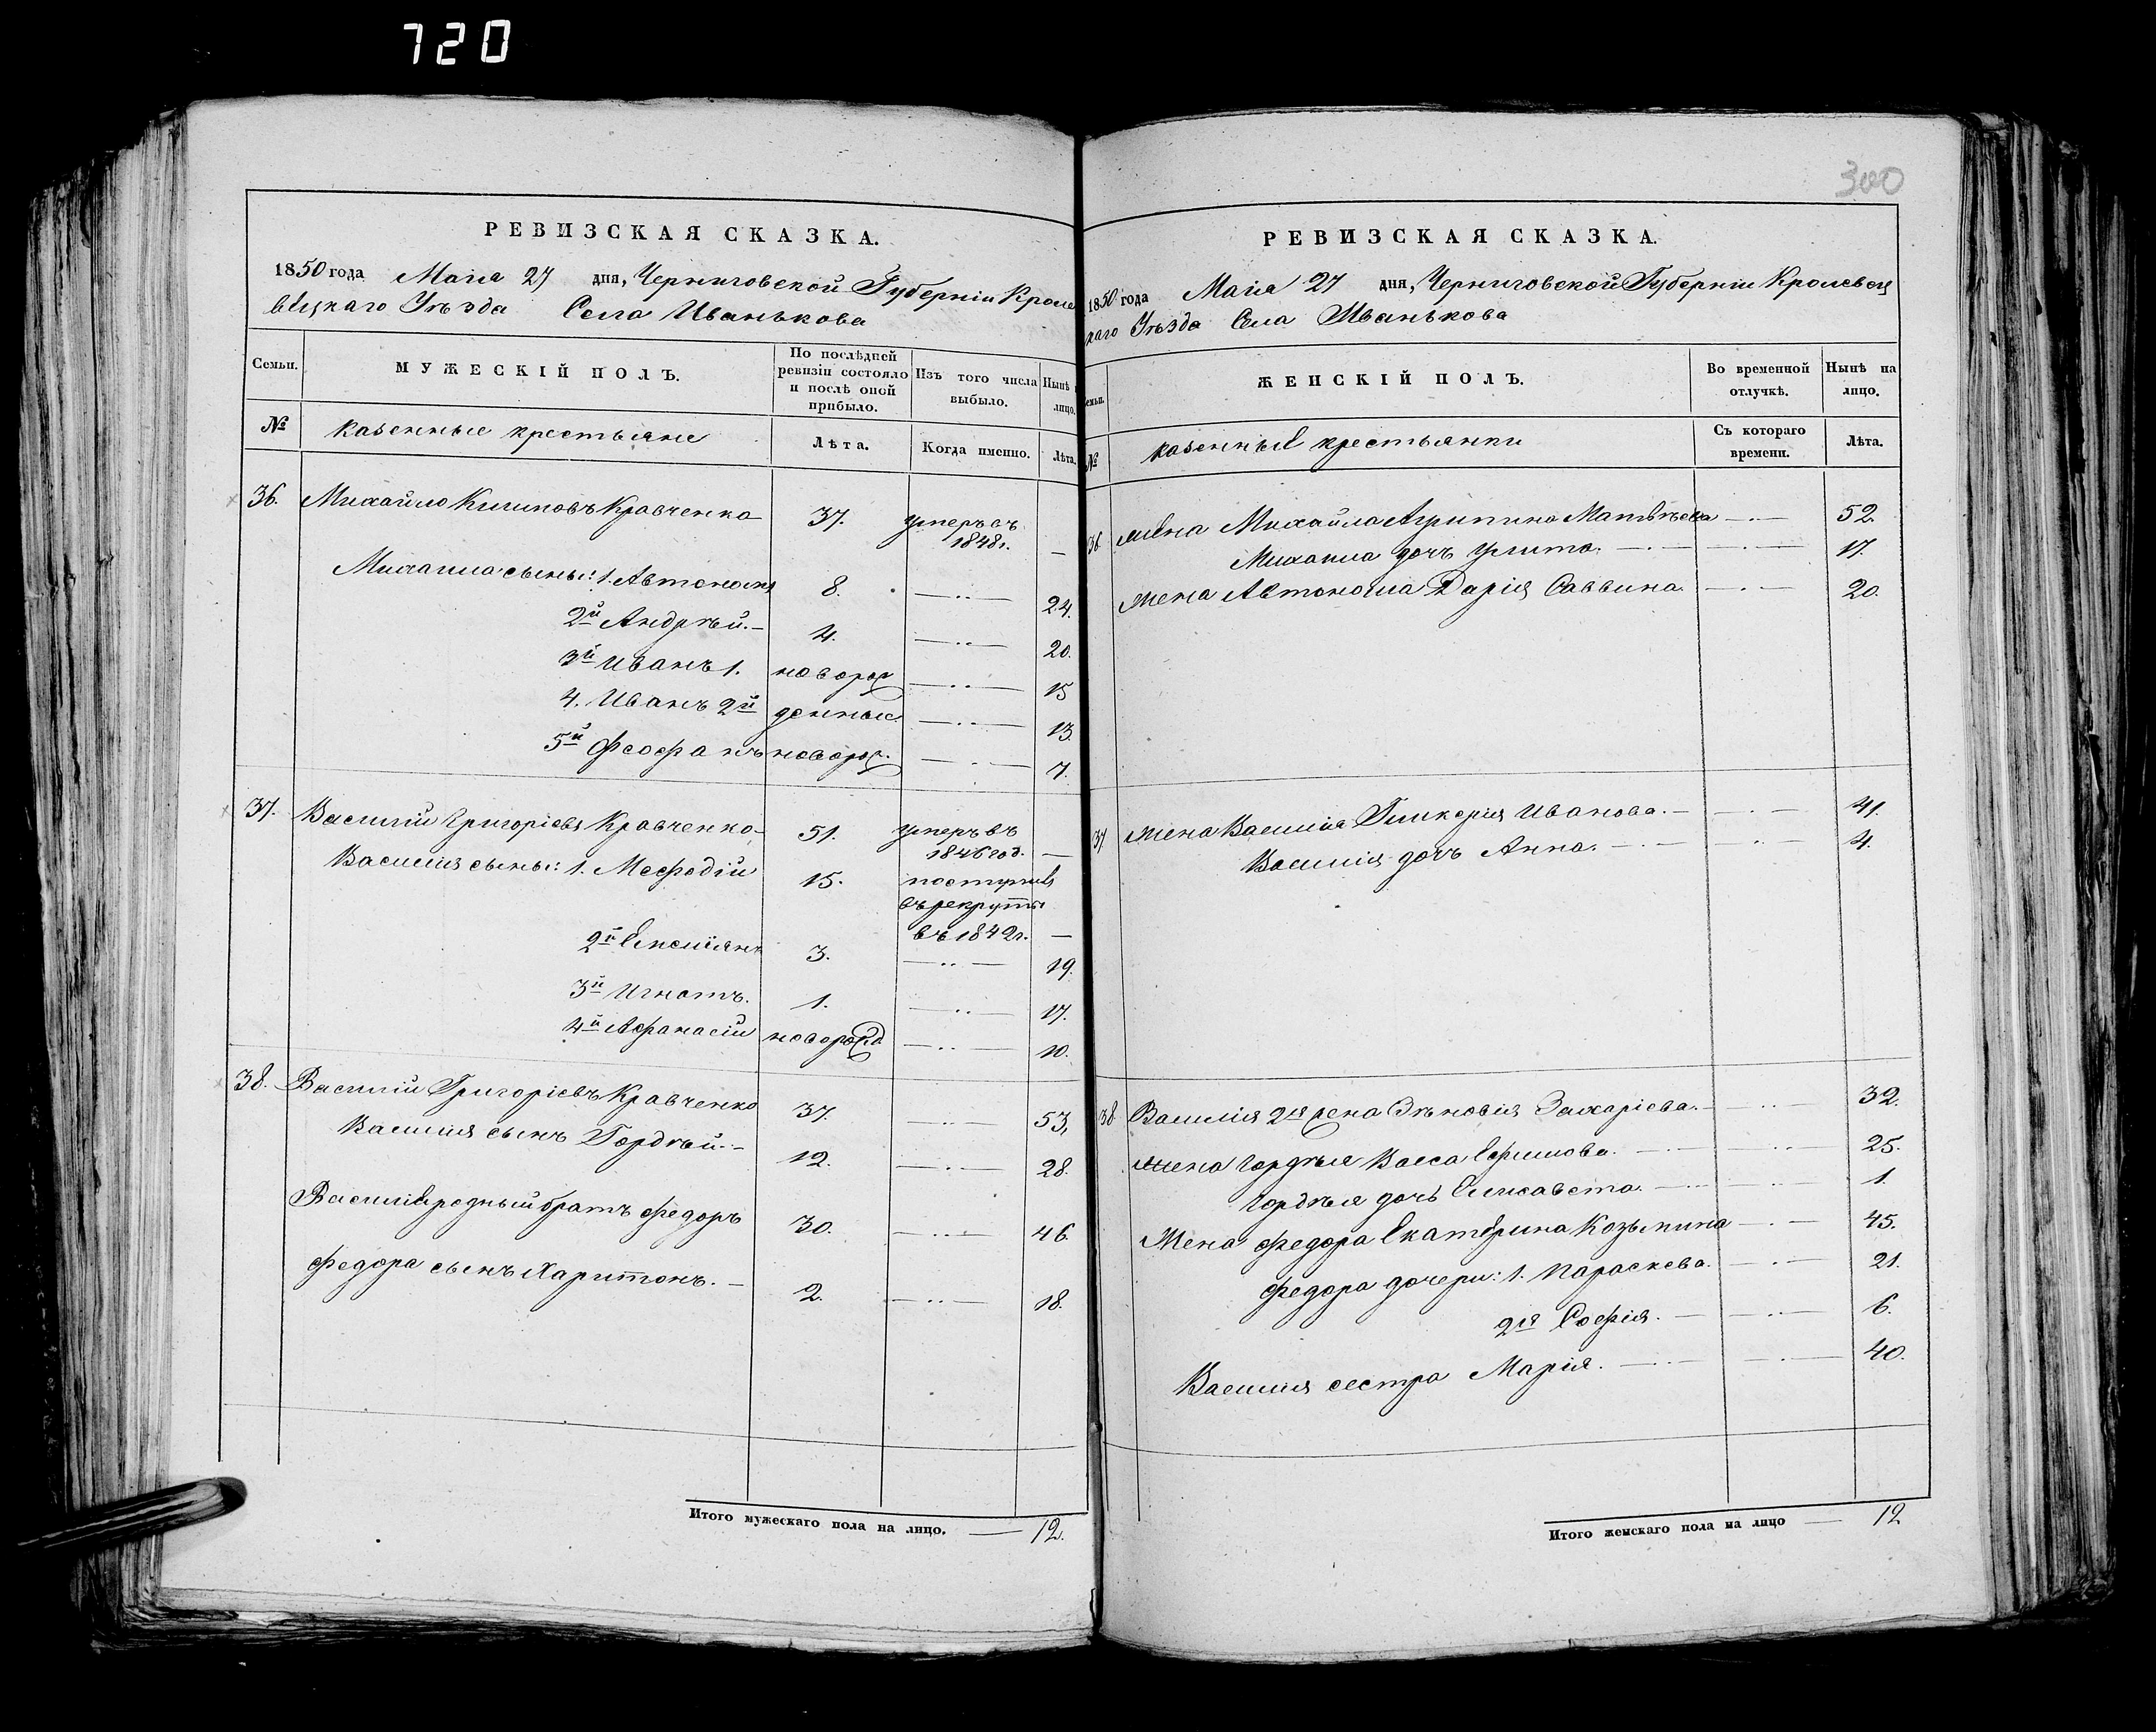 720
300
РЕВИЗСКАЯ СКАЗКА.
1850 года Маія 27 дня, Черниговской Губерніи Кроле
вецкаго Уѣзда Села Иванькова
Семьи.
МУЖЕСКІЙ ПОЛЪ.
По послѣдней ревизіи состояло и послѣ оной прибыло.
Изъ того числа выбыло.
Нынѣ лицо.
№
казенные крестьяне
Лѣта.
Когда именно.
Лѣта.
36. Михайло Климовъ Кравченко 37. умеръ въ
1848г. —
Михаила сыны: 1. Автономъ 8. — 24.
2й Андрѣй. — 4. — 20.
3й Иванъ 1. новорож — 15
4. Иванъ 2й денные — 13.
5й Феофанъ новорож. — 7.
37. Василий Григоріевъ Кравченко 51. умеръ въ
1846 год. —
Василія сыны: 1. Мефодій 15. поступилъ
въ рекруты
въ 1842г. —
2й 3. — 19.
3й Игнатъ. 1. — 17.
4й Афанасій новорожд — 10.
38. Василій Григоріевъ Кравченко 37 — 53,
Василія сынъ Гордѣй. — 12. — 28.
Василія родный братъ Федоръ 30. — 46.
Федора сынъ Харитонъ. — 2. — 18.
Итого мужескаго пола на лицо. — 12.
РЕВИЗСКАЯ СКАЗКА.
1850 года Маія 27 дня, Черниговской Губерніи Кролевец
каго Уѣзда Села Иванькова
емьи.
ЖЕНСКІЙ ПОЛЪ.
Во временной отлучкѣ.
Нынѣ на лицо.
№
казенные крестьянки
Съ котораго времени.
Лѣта.
36. жена Михайла Агрипина Матвѣева — 52.
Михаила дочь Улита. — 17.
жена Автонома Дарія Саввина — 20.
37 жена Василія Гликерія Иванова. — 41.
Василія дочь Анна. — 4.
38 Василія 2я жена Зѣновія Захаріева. — 32.
жена Гордѣя Васса Ефимова. — 25.
Гордѣя дочь Елисавета. — 1.
Жена Федора Екатерина Козьмина — 45.
Федора дочери: 1. Параскева. — 21.
2я Софія. — 6.
Василія сестра Марія. — 40.
Итого женскаго пола на лицо — 12